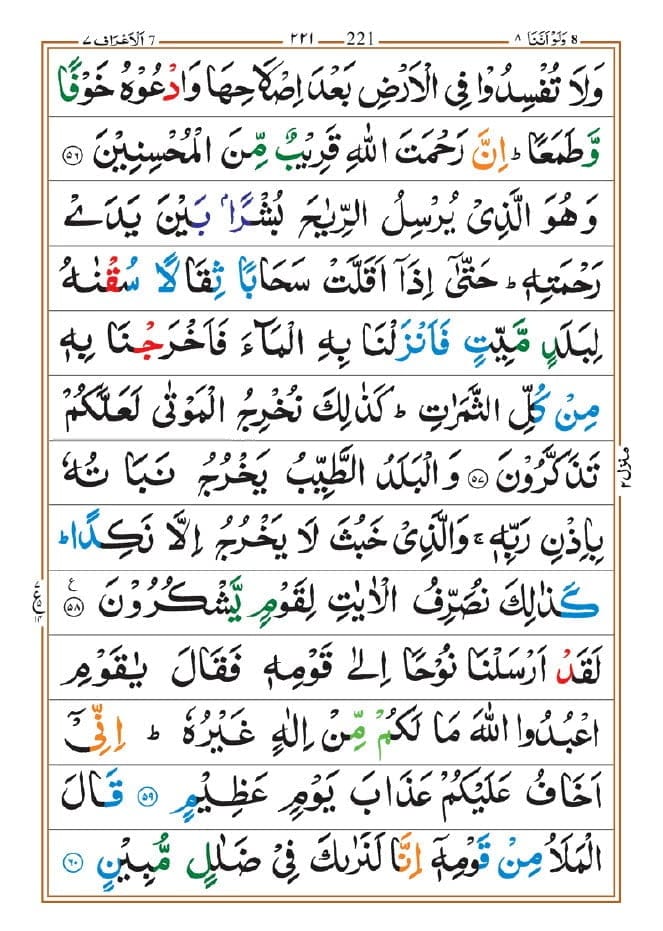 ٨ وَلَوْ اَنَّنَا 8 221 ٢٢١ 7 اَلْاَعْرَاف ٧
وَلَا تُفْسِدُوْا فِى الْاَرْضِ بَعْدَ اِصْلَاحِهَا وَادْعُوْهُ خَوْفًا
وَّطَمَعًا ؕ اِنَّ رَحْمَتَ اللّٰهِ قَرِيْبٌ مِّنَ الْمُحْسِنِيْنَ ۝٥٦
وَهُوَ الَّذِىْ يُرْسِلُ الرِّيٰحَ بُشْرًاۢ بَيْنَ يَدَىْ
رَحْمَتِهٖ ؕ حَتّٰۤى اِذَاۤ اَقَلَّتْ سَحَابًا ثِقَالًا سُقْنٰهُ
لِبَلَدٍ مَّيِّتٍ فَاَنْزَلْنَا بِهِ الْمَآءَ فَاَخْرَجْنَا بِهٖ
مِنْ كُلِّ الثَّمَرٰتِ ؕ كَذٰلِكَ نُخْرِجُ الْمَوْتٰى لَعَلَّكُمْ
تَذَكَّرُوْنَ ۝٥٧ وَالْبَلَدُ الطَّيِّبُ يَخْرُجُ نَبَاتُهٗ
بِاِذْنِ رَبِّهٖ ۚ وَالَّذِىْ خَبُثَ لَا يَخْرُجُ اِلَّا نَكِدًا ؕ
كَذٰلِكَ نُصَرِّفُ الْاٰيٰتِ لِقَوْمٍ يَّشْكُرُوْنَ ۝٥٨ ع
لَقَدْ اَرْسَلْنَا نُوْحًا اِلٰى قَوْمِهٖ فَقَالَ يٰقَوْمِ
اعْبُدُوا اللّٰهَ مَا لَكُمْ مِّنْ اِلٰهٍ غَيْرُهٗ ؕ اِنِّىْۤ
اَخَافُ عَلَيْكُمْ عَذَابَ يَوْمٍ عَظِيْمٍ ۝٥٩ قَالَ
الْمَلَاُ مِنْ قَوْمِهٖۤ اِنَّا لَنَرٰىكَ فِىْ ضَلٰلٍ مُّبِيْنٍ ۝٦٠
منزل ٢